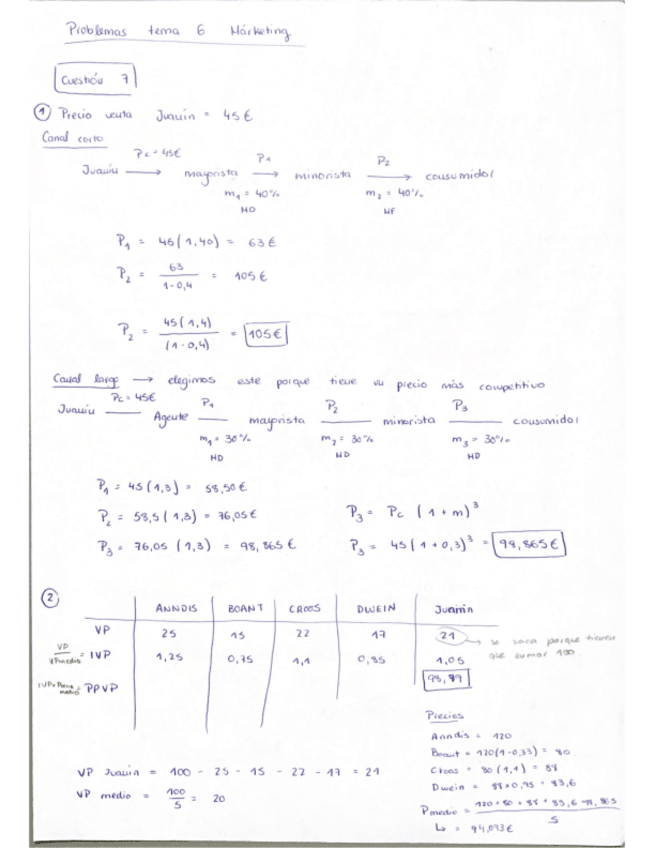 Problemas tema 6 Márketing
Cuestión 7
① Precio venta Juanin = 45€
Canal corto
Pc = 45€ P1 P2
Juanin → mayorista → minorista → consumidor
m1 = 40% m2 = 40%
MD MF
P1 = 45(1,40) = 63€
P2 = 63 / 1-0,4 = 105€
P2 = 45(1,4) / (1-0,4) = 105€
Canal largo → elegimos este porque tiene un precio más competitivo
Pc = 45€ P1 P2 P3
Juanin Agente mayorista minorista consumidor
m1 = 30% m2 = 30% m3 = 30%
MD MD MD
P1 = 45(1,3) = 58,50€
P2 = 58,5(1,3) = 76,05€ P3 = Pc (1+m)³
P3 = 76,05 (1,3) = 98,865€ P3 = 45(1+0,3)³ = 98,865€
②
ANNDIS BOANT CROOS DWEIN Juanin
VP 25 15 22 17 21 → se saca porque tienen
que sumar 100.
VP / VPmedio = IVP 1,25 0,75 1,1 0,85 1,05
IVP×Precio medio = PPVP 98,79
Precios
Anndis = 120
Boant = 120(1-0,33) = 80
Croos = 80(1,1) = 88
VP Juanin = 100 - 25 - 15 - 22 - 17 = 21
Dwein = 88×0,95 = 83,6
VP medio = 100 / 5 = 20
Pmedio = 120+80+88+83,6+98,865 / 5
↳ = 94,093€